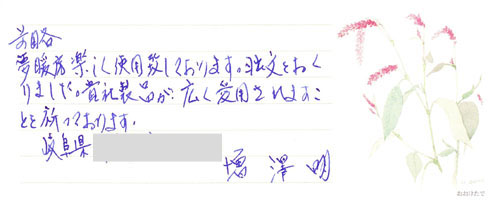 前略
夢暖房楽しく使用致しております。注文をおく
りました。貴社製品が広く愛用されますこ
とを祈っております。
岐阜県
増澤 明
おおけたで